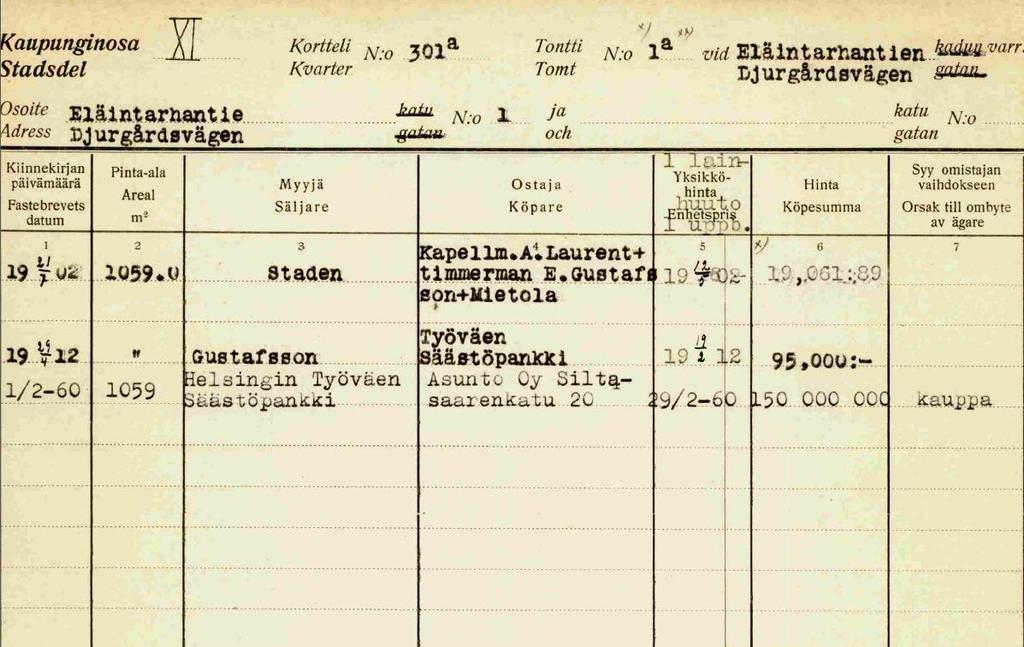 Kaupunginosa XI Kortteli N:o 301a Tontti N:o 1a x) xx) vid Eläintarhantien kadun varr.
Stadsdel Kvarter Tomt Djurgårdsvägen gatan
Osoite Eläintarhantie katu N:o 1 ja katu N:o
Adress Djurgårdsvägen gatan och gatan
Kiinnekirjan päivämäärä
Fastebrevets datum
Pinta-ala
Areal
m²
Myyjä
Säljare
Ostaja
Köpare
1 lain-
Yksikkö-
hinta
huuto
Enhetspris
1 uppb.
Hinta
Köpesumma
Syy omistajan
vaihdokseen
Orsak till ombyte
av ägare
1 2 3 5 x) 6 7
Kapellm.A.Laurent+
19 21/7 02 1059.0 Staden timmerman E.Gustafs 19 02 19,061:89
son+Mietola
Työväen
19 12 " Gustafsson Säästöpankki 19 19/2 12 95,000:-
1/2-60 1059 Helsingin Työväen Asunto Oy Silta-
Säästöpankki saarenkatu 20 29/2-60 150 000 000 kauppa